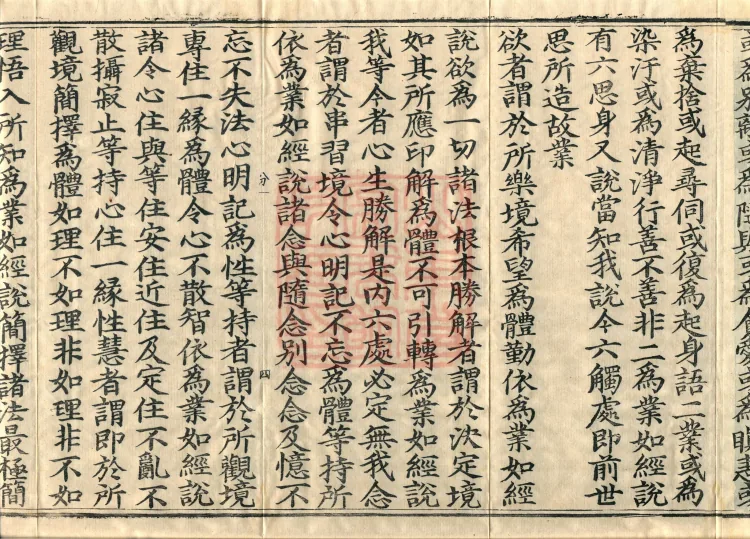 為棄捨或起尋伺或復為起身語二業或為
染汙或為清淨行善不善非二為業如經說
有六思身又說當知我說今六觸處即前世
思所造故業
欲者謂於所樂境希望為體勤依為業如經
說欲為一切諸法根本勝解者謂於決定境
如其所應印解為體不可引轉為業如經說
我等今者心生勝解是內六處必定無我念
者謂於串習境令心明記不忘為體等持所
依為業如經說諸念與隨念別念念及憶不
分一 四
忘不失法心明記為性等持者謂於所觀境
專住一緣為體令心不散智依為業如經說
諸令心住與等住安住近住及定住不亂不
散攝寂止等持心住一緣性慧者謂即於所
觀境簡擇為體如理不如理非如理非不如
理悟入所知為業如經說簡擇諸法最極簡